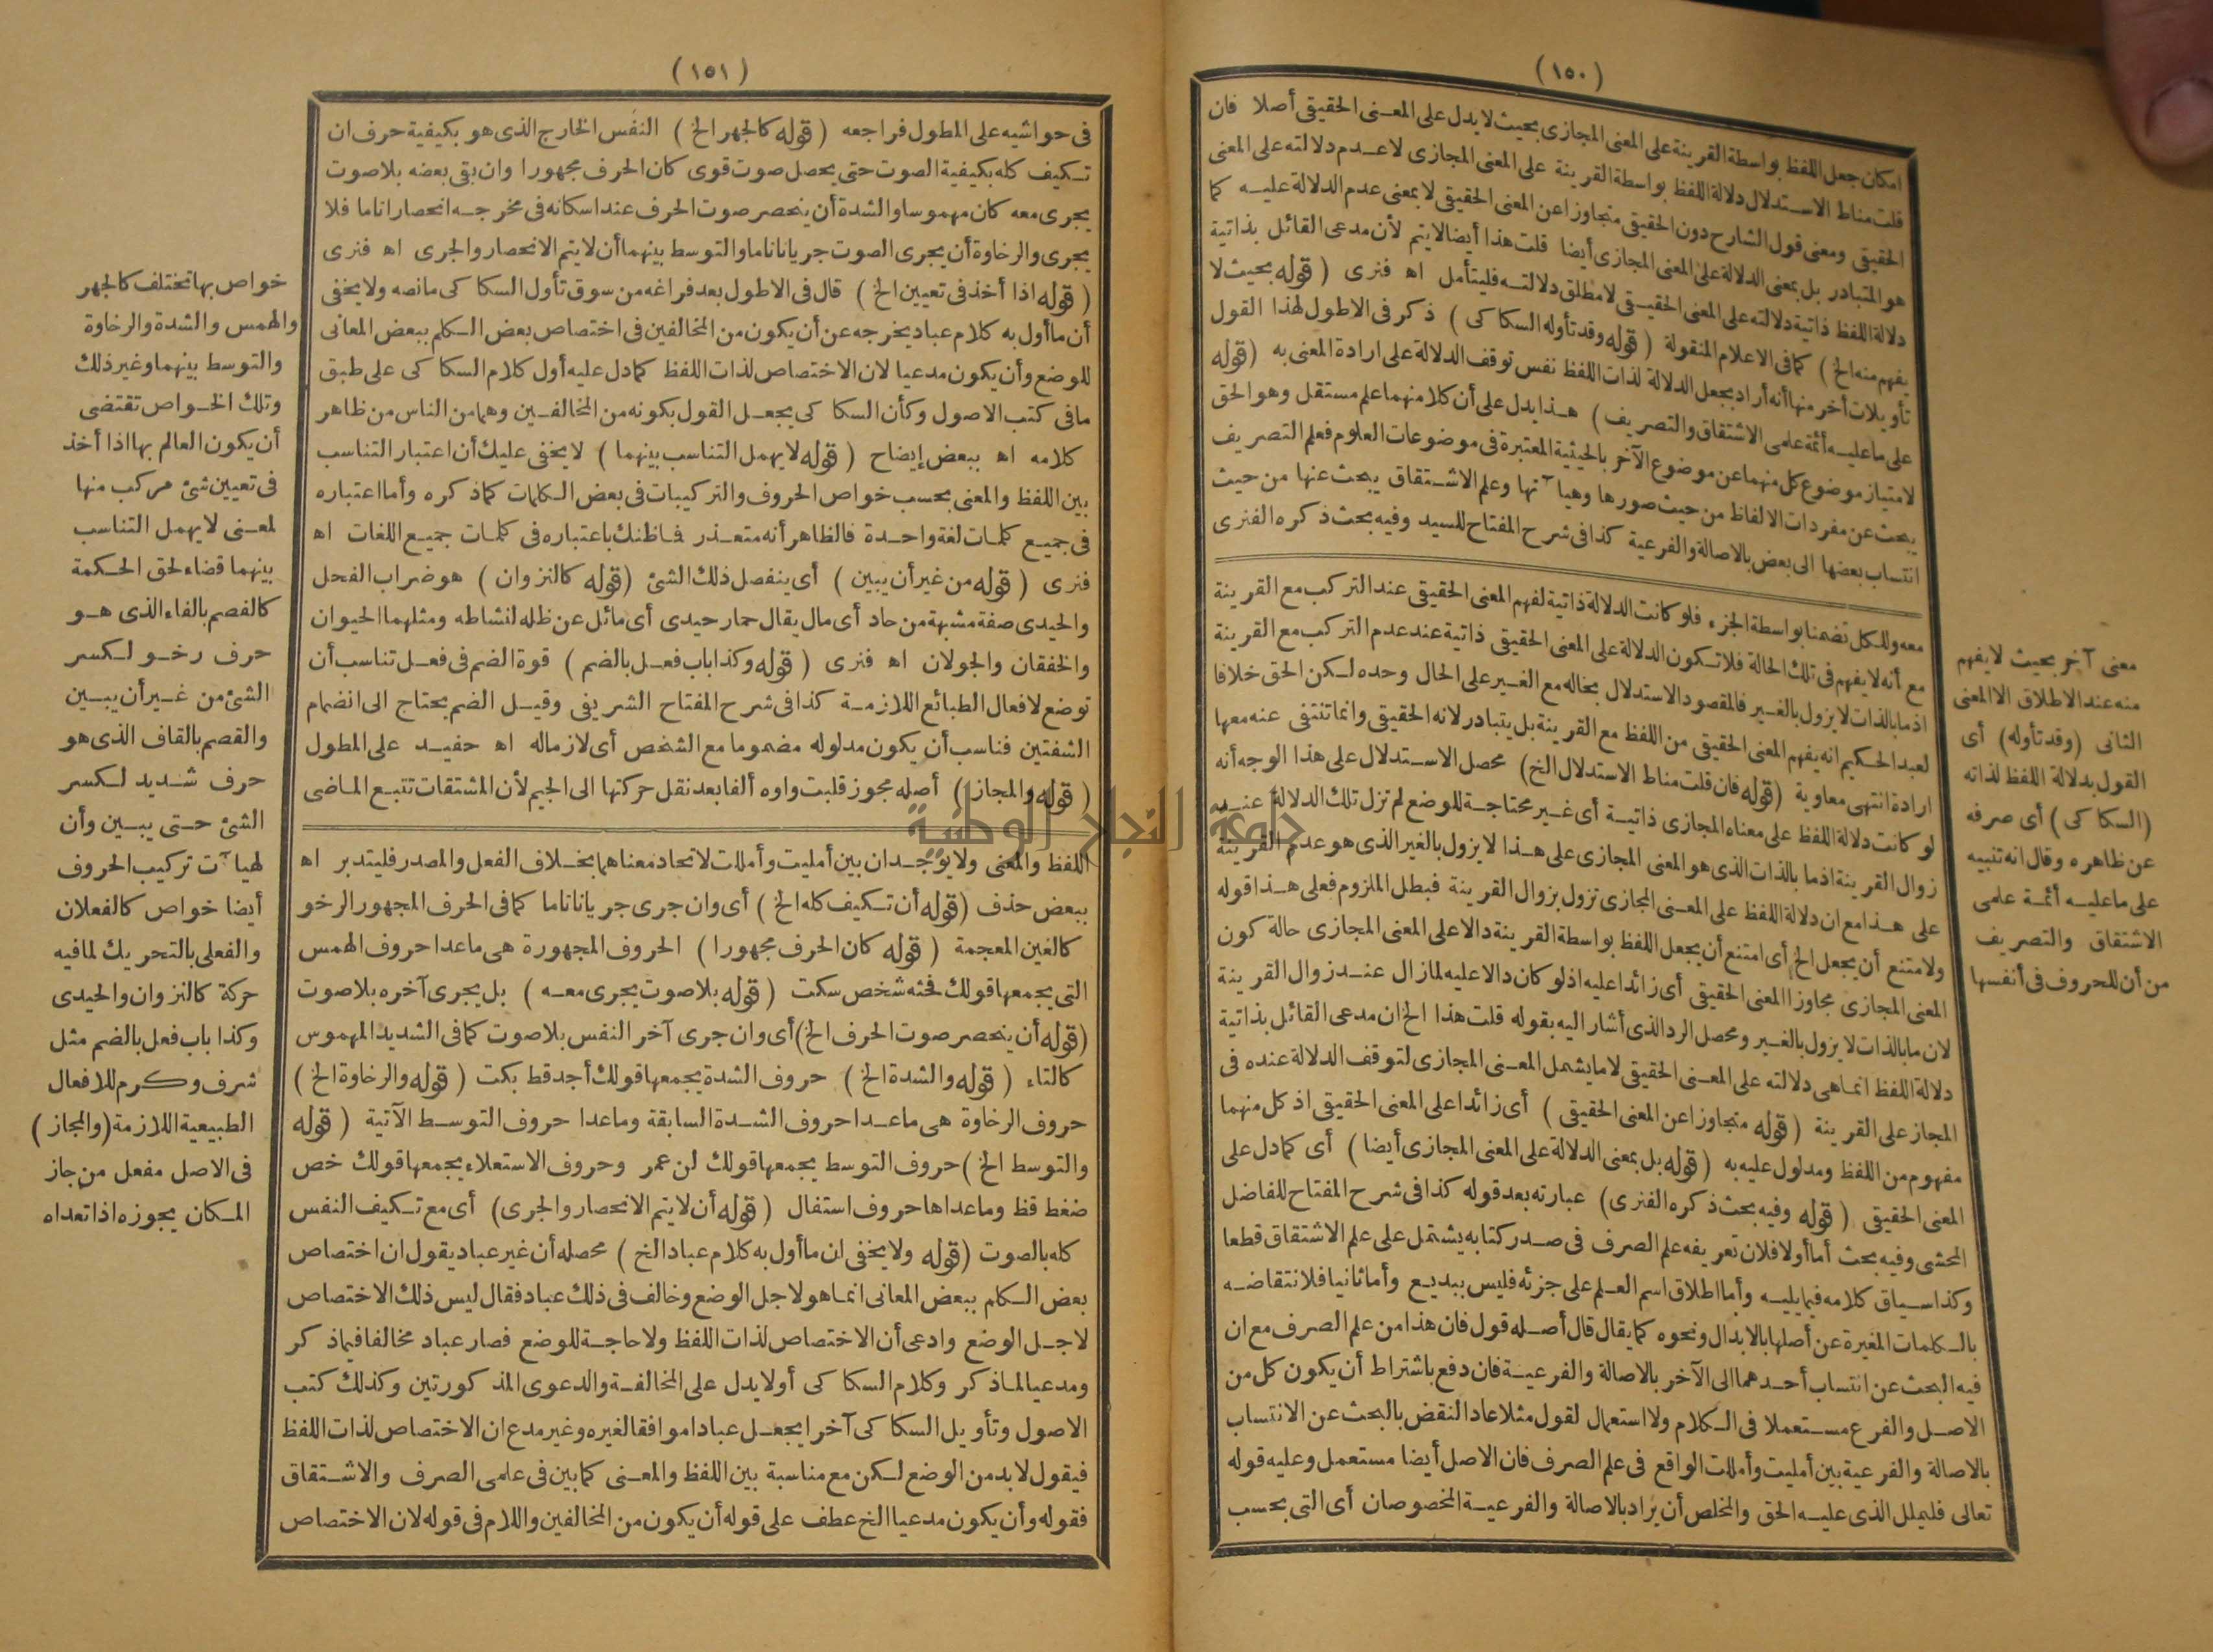 (١٥٠)
امكان جعل اللفظ بواسطة القرينة على المعنى المجازى بحيث لا يدل على المعنى الحقيقى أصلا فان
قلت مناط الاستدلال دلالة اللفظ بواسطة القرينة على المعنى المجازى لا عدم دلالته على المعنى
الحقيقى ومعنى قول الشارح دون الحقيقى متجاوزا عن المعنى الحقيقى لا بمعنى عدم الدلالة عليه كما
هو المتبادر بل بمعنى الدلالة على المعنى المجازى أيضا قلت هذا أيضا لا يتم لأن مدعى القائل بذاتية
دلالة اللفظ ذاتية دلالته على المعنى الحقيقى لا مطلق دلالته فليتأمل اه فنرى (قوله بحيث لا
يفهم منه الخ) كما فى الاعلام المنقولة (قوله وقد تأوله السكاكى) ذكر فى الاطول لهذا القول
تأويلات أخر منها أنه أراد بجعل الدلالة لذات اللفظ نفس توقف الدلالة على ارادة المعنى به (قوله
على ما عليه أئمة علمى الاشتقاق والتصريف) هذا يدل على أن كلا منهما علم مستقل وهو الحق
لامتياز موضوع كل منهما عن موضوع الآخر بالحيثية المعتبرة فى موضوعات العلوم فعلم التصريف
يبحث عن مفردات الالفاظ من حيث صورها وهيآتها وعلم الاشتقاق يبحث عنها من حيث
انتساب بعضها الى بعض بالاصالة والفرعية كذا فى شرح المفتاح للسيد وفيه بحث ذكره الفنرى
معه وللكل تضمنا بواسطة الجزء فلو كانت الدلالة ذاتية لفهم المعنى الحقيقى عند التركب مع القرينة
مع أنه لا يفهم فى تلك الحالة فلا تكون الدلالة على المعنى الحقيقى ذاتية عند عدم التركب مع القرينة
اذ ما بالذات لا يزول بالغير فالمقصود الاستدلال بحاله مع الغير على الحال وحده لكن الحق خلافا
لعبد الحكيم انه يفهم المعنى الحقيقى من اللفظ مع القرينة بل يتبادر لانه الحقيقى وانما تنتفى عنه معها
ارادة انتهى معاوية (قوله فان قلت مناط الاستدلال الخ) محصل الاستدلال على هذا الوجه أنه
لو كانت دلالة اللفظ على معناه المجازى ذاتية أى غير محتاجة للوضع لم تزل تلك الدلالة عند
زوال القرينة اذ ما بالذات الذى هو المعنى المجازى على هذا لا يزول بالغير الذى هو عدم القرينة
على هذا مع ان دلالة اللفظ على المعنى المجازى تزول بزوال القرينة فبطل الملزوم فعلى هذا قوله
ولامتنع أن يجعل الخ أى امتنع أن يجعل اللفظ بواسطة القرينة دالا على المعنى المجازى حالة كون
المعنى المجازى مجاوزا المعنى الحقيقى أى زائدا عليه اذ لو كان دالا عليه لما زال عند زوال القرينة
لان ما بالذات لا يزول بالغير ومحصل الرد الذى أشار اليه بقوله قلت هذا الخ ان مدعى القائل بذاتية
دلالة اللفظ انما هى دلالته على المعنى الحقيقى لا ما يشمل المعنى المجازى لتوقف الدلالة عنده فى
المجاز على القرينة (قوله متجاوزا عن المعنى الحقيقى) أى زائدا على المعنى الحقيقى اذ كل منهما
مفهوم من اللفظ ومدلول عليه به (قوله بل بمعنى الدلالة على المعنى المجازى أيضا) أى كما دل على
المعنى الحقيقى (قوله وفيه بحث ذكره الفنرى) عبارته بعد قوله كذا فى شرح المفتاح للفاضل
المحشى وفيه بحث أما أولا فلان تعريفه علم الصرف فى صدر كتابه يشتمل على علم الاشتقاق قطعا
وكذا سياق كلامه فيما يليه وأما اطلاق اسم العلم على جزئه فليس ببديع وأما ثانيا فلانتقاضه
بالكلمات المغيرة عن أصلها بالابدال ونحوه كما يقال قال أصله قول فان هذا من علم الصرف مع ان
فيه البحث عن انتساب أحدهما الى الآخر بالاصالة والفرعية فان دفع باشتراط أن يكون كل من
الاصل والفرع مستعملا فى الكلام ولا استعمال لقول مثلا عاد النقض بالبحث عن الانتساب
بالاصالة والفرعية بين أمليت وأمللت الواقع فى علم الصرف فان الاصل أيضا مستعمل وعليه قوله
تعالى فليملل الذى عليه الحق والمخلص أن يراد بالاصالة والفرعية المخصوصان أى التى بحسب
معنى آخر بحيث لا يفهم
منه عند الاطلاق الا المعنى
الثانى (وقد تأوله) أى
القول بدلالة اللفظ لذاته
(السكاكى) أى صرفه
عن ظاهره وقال انه تنبيه
على ما عليه أئمة علمى
الاشتقاق والتصريف
من أن للحروف فى أنفسها
(١٥١)
فى حواشيه على المطول فراجعه (قوله كالجهر الخ) النفس الخارج الذى هو بكيفية حرف ان
تكيف كله بكيفية الصوت حتى يحصل صوت قوى كان الحرف مجهورا وان بقى بعضه بلا صوت
يجرى معه كان مهموسا والشدة أن ينحصر صوت الحرف عند اسكانه فى مخرجه انحصارا تاما فلا
يجرى والرخاوة أن يجرى الصوت جريانا تاما والتوسط بينهما أن لا يتم الانحصار والجرى اه فنرى
(قوله اذا أخذ فى تعيين الخ) قال فى الاطول بعد فراغه من سوق تأول السكاكى ما نصه ولا يخفى
أن ما أول به كلام عباد يخرجه عن أن يكون من المخالفين فى اختصاص بعض الكلم ببعض المعانى
للوضع وأن يكون مدعيا لان الاختصاص لذات اللفظ كما دل عليه أول كلام السكاكى على طبق
ما فى كتب الاصول وكأن السكاكى يجعل القول بكونه من المخالفين وهما من الناس من ظاهر
كلامه اه ببعض إيضاح (قوله لا يهمل التناسب بينهما) لا يخفى عليك أن اعتبار التناسب
بين اللفظ والمعنى بحسب خواص الحروف والتركيبات فى بعض الكلمات كما ذكره وأما اعتباره
فى جميع كلمات لغة واحدة فالظاهر أنه متعذر فما ظنك باعتباره فى كلمات جميع اللغات اه
فنرى (قوله من غير أن يبين) أى ينفصل ذلك الشئ (قوله كالنزوان) هو ضراب الفحل
والحيدى صفة مشبهة من حاد أى مال يقال حمار حيدى أى مائل عن ظله لنشاطه ومثلهما الحيوان
والخفقان والجولان اه فنرى (قوله وكذا باب فعل بالضم) قوة الضم فى فعل تناسب أن
توضع لافعال الطبائع اللازمة كذا فى شرح المفتاح الشريفى وقيل الضم يحتاج الى انضمام
الشفتين فناسب أن يكون مدلوله مضموما مع الشخص أى لازما له اه حفيد على المطول
(قوله والمجاز) أصله مجوز قلبت واوه ألفا بعد نقل حركتها الى الجيم لأن المشتقات تتبع الماضى
اللفظ والمعنى ولا يوجدان بين أمليت وأمللت لاتحاد معناهما بخلاف الفعل والمصدر فليتدبر اه
ببعض حذف (قوله أن تكيف كله الخ) أى وان جرى جريانا تاما كما فى الحرف المجهور الرخو
كالغين المعجمة (قوله كان الحرف مجهورا) الحروف المجهورة هى ما عدا حروف الهمس
التى يجمعها قولك فحثه شخص سكت (قوله بلا صوت يجرى معه) بل يجرى آخره بلا صوت
(قوله أن ينحصر صوت الحرف الخ) أى وان جرى آخر النفس بلا صوت كما فى الشديد المهموس
كالتاء (قوله والشدة الخ) حروف الشدة يجمعها قولك أجد قط بكت (قوله والرخاوة الخ)
حروف الرخاوة هى ما عدا حروف الشدة السابقة وما عدا حروف التوسط الآتية (قوله
والتوسط الخ) حروف التوسط يجمعها قولك لن عمر وحروف الاستعلاء يجمعها قولك خص
ضغط قظ وما عداها حروف استفال (قوله أن لا يتم الانحصار والجرى) أى مع تكيف النفس
كله بالصوت (قوله ولا يخفى ان ما أول به كلام عباد الخ) محصله أن غير عباد يقول ان اختصاص
بعض الكلم ببعض المعانى انما هو لاجل الوضع وخالف فى ذلك عباد فقال ليس ذلك الاختصاص
لاجل الوضع وادعى أن الاختصاص لذات اللفظ ولا حاجة للوضع فصار عباد مخالفا فيما ذكر
ومدعيا لما ذكر وكلام السكاكى أولا يدل على المخالفة والدعوى المذكورتين وكذلك كتب
الاصول وتأويل السكاكى آخرا يجعل عبادا موافقا لغيره وغير مدع ان الاختصاص لذات اللفظ
فيقول لابد من الوضع لكن مع مناسبة بين اللفظ والمعنى كما بين فى علمى الصرف والاشتقاق
فقوله وأن يكون مدعيا الخ عطف على قوله أن يكون من المخالفين واللام فى قوله لان الاختصاص
خواص بها تختلف كالجهر
والهمس والشدة والرخاوة
والتوسط بينهما وغير ذلك
وتلك الخواص تقتضى
أن يكون العالم بها اذا أخذ
فى تعيين شئ مركب منها
لمعنى لا يهمل التناسب
بينهما قضاء لحق الحكمة
كالفصم بالفاء الذى هو
حرف رخو لكسر
الشئ من غير أن يبين
والقصم بالقاف الذى هو
حرف شديد لكسر
الشئ حتى يبين وأن
لهيآت تركيب الحروف
أيضا خواص كالفعلان
والفعلى بالتحريك لما فيه
حركة كالنزوان والحيدى
وكذا باب فعل بالضم مثل
شرف وكرم للافعال
الطبيعية اللازمة (والمجاز)
فى الاصل مفعل من جاز
المكان يجوزه اذا تعداه
جامعة النجاح الوطنية